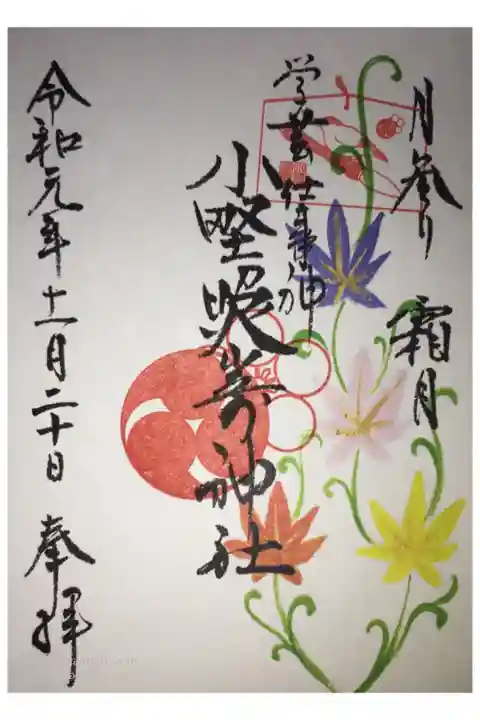 月參り 霜月
学芸仕事神
小野照崎神社
令和元年十一月二十日 奉拝